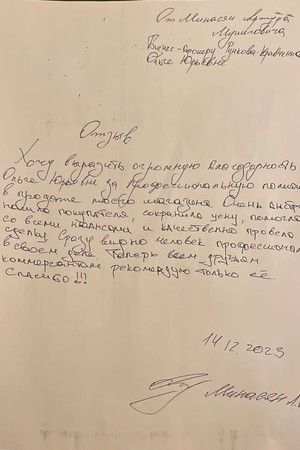 От Минасян Артура
Муриновича
Бизнес-брокеру Рункова-Кравченко
Ольге Юрьевне
Отзыв
Хочу выразить огромную благодарность
Ольге Юрьевне за профессиональную помощь
в продаже моего магазина. Очень быстро
нашла покупателя, сохранила цену, помогла
со всеми нюансами и качественно провела
сделку. Сразу видно человек профессионал
в своем деле. Теперь всем друзьям
коммерсантам рекомендую только её.
Спасибо!!!
14.12.2023
Минасян А.